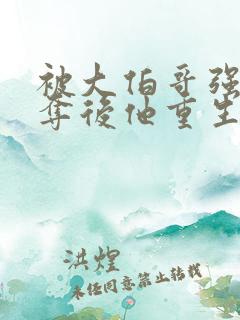 被大伯哥强
夺后他重生
洪煌
未经同意禁止转载